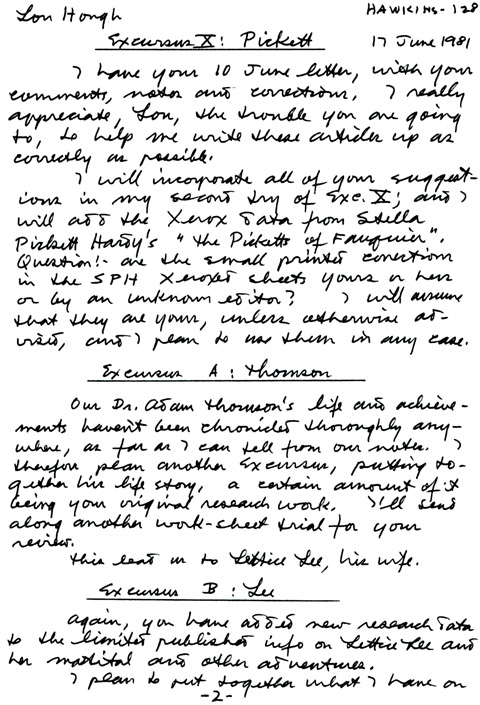 Lon Hough
HAWKINS-128
Excursus X: Pickett
17 June 1981
I have your 10 June letter, with your
comments, notes and corrections. I really
appreciate, Lon, the trouble you are going
to, to help me write these articles up as
correctly as possible.
I will incorporate all of your suggest-
ions in my second try of Exc. X; and I
will add the Xerox data from Stella
Pickett Hardy's "The Picketts of Fauquier".
Question:- are the small printed corrections
in the SPH Xeroxed sheets yours or hers
or by an unknown editor? I will assume
that they are yours, unless otherwise ad-
vised, and I plan to use them in any case.
Excursus A: Thomson
Our Dr. Adam Thomson's life and achieve-
ments haven't been chronicled thoroughly any-
where, as far as I can tell from our notes. I
therefore plan another Excursus, putting to-
gether his life story, a certain amount of it
being your original research work. I'll send
along another work-sheet trial for your
review.
This leads us to Lettice Lee, his wife.
Excursus B: Lee
Again, you have added new research data
to the limited published info on Lettice Lee and
her marital and other adventures.
I plan to put together what I have on
-2-